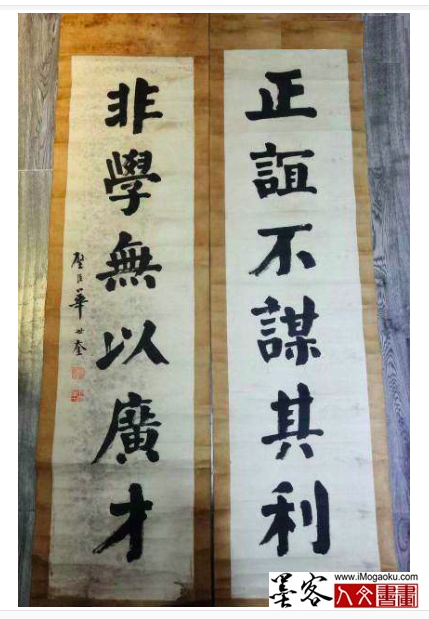 正誼不謀其利
非學無以廣才
璧臣華世奎
墨客
www.iMogaoku.com
人文書畫